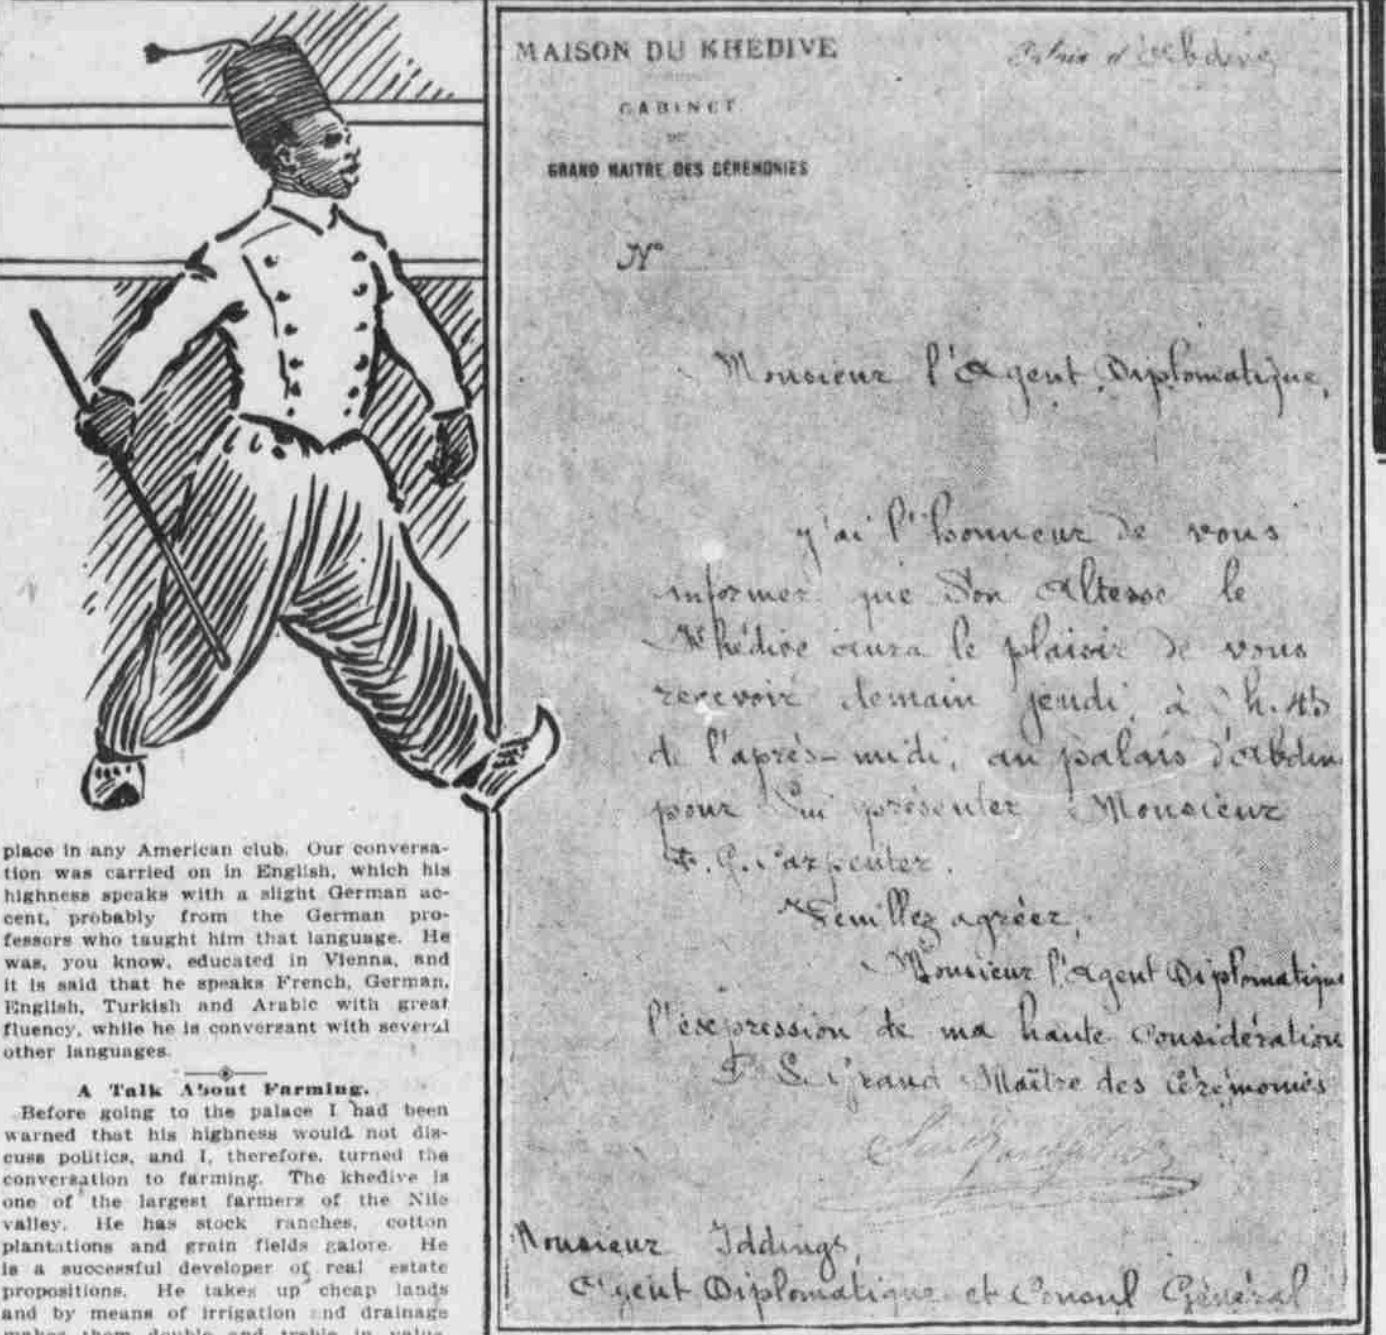 place in any American club. Our conversa-
tion was carried on in English, which his
highness speaks with a slight German ac-
cent, probably from the German pro-
fessors who taught him that language. He
was, you know, educated in Vienna, and
it is said that he speaks French, German,
English, Turkish and Arabic with great
fluency, while he is conversant with several
other languages.
A Talk About Farming.
Before going to the palace I had been
warned that his highness would not dis-
cuss politics, and I, therefore, turned the
conversation to farming. The khedive is
one of the largest farmers of the Nile
valley. He has stock ranches, cotton
plantations and grain fields galore. He
is a successful developer of real estate
propositions. He takes up cheap lands
and by means of irrigation and drainage
makes them double and treble in value.
MAISON DU KHEDIVE
CABINET
DU
GRAND MAITRE DES CÉRÉMONIES
N°
Monsieur l'Agent Diplomatique,
J'ai l'honneur de vous
informer que Son Altesse le
Khédive aura le plaisir de vous
recevoir demain jeudi, à h. 45
de l'après-midi, au palais d'Abdin
pour Lui présenter Monsieur
F. G. Carpenter.
Veuillez agréer,
Monsieur l'Agent Diplomatique
l'expression de ma haute Considération
Le Grand Maître des Cérémonies
Monsieur Iddings,
Agent Diplomatique et Consul Général